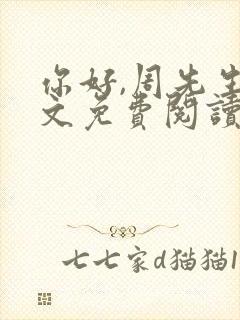 你好,周先生
文免费閱讀
七七家d猫猫1